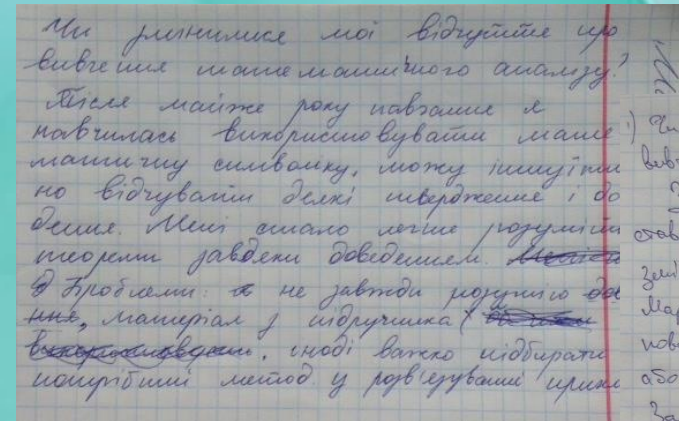 Чи змінилися мої відчуття про
вивчення математичного аналізу?
Після майже року навчання я
навчилась використовувати мате
матичну символіку, можу інтуїтив
но відчувати деякі твердження і до
дення. Мені стало легше розуміти
теореми завдяки доведенням.
Проблеми: не завжди розумію
матеріал з підручника
іноді важко підбирати
потрібний метод у розв'язуванні прикл